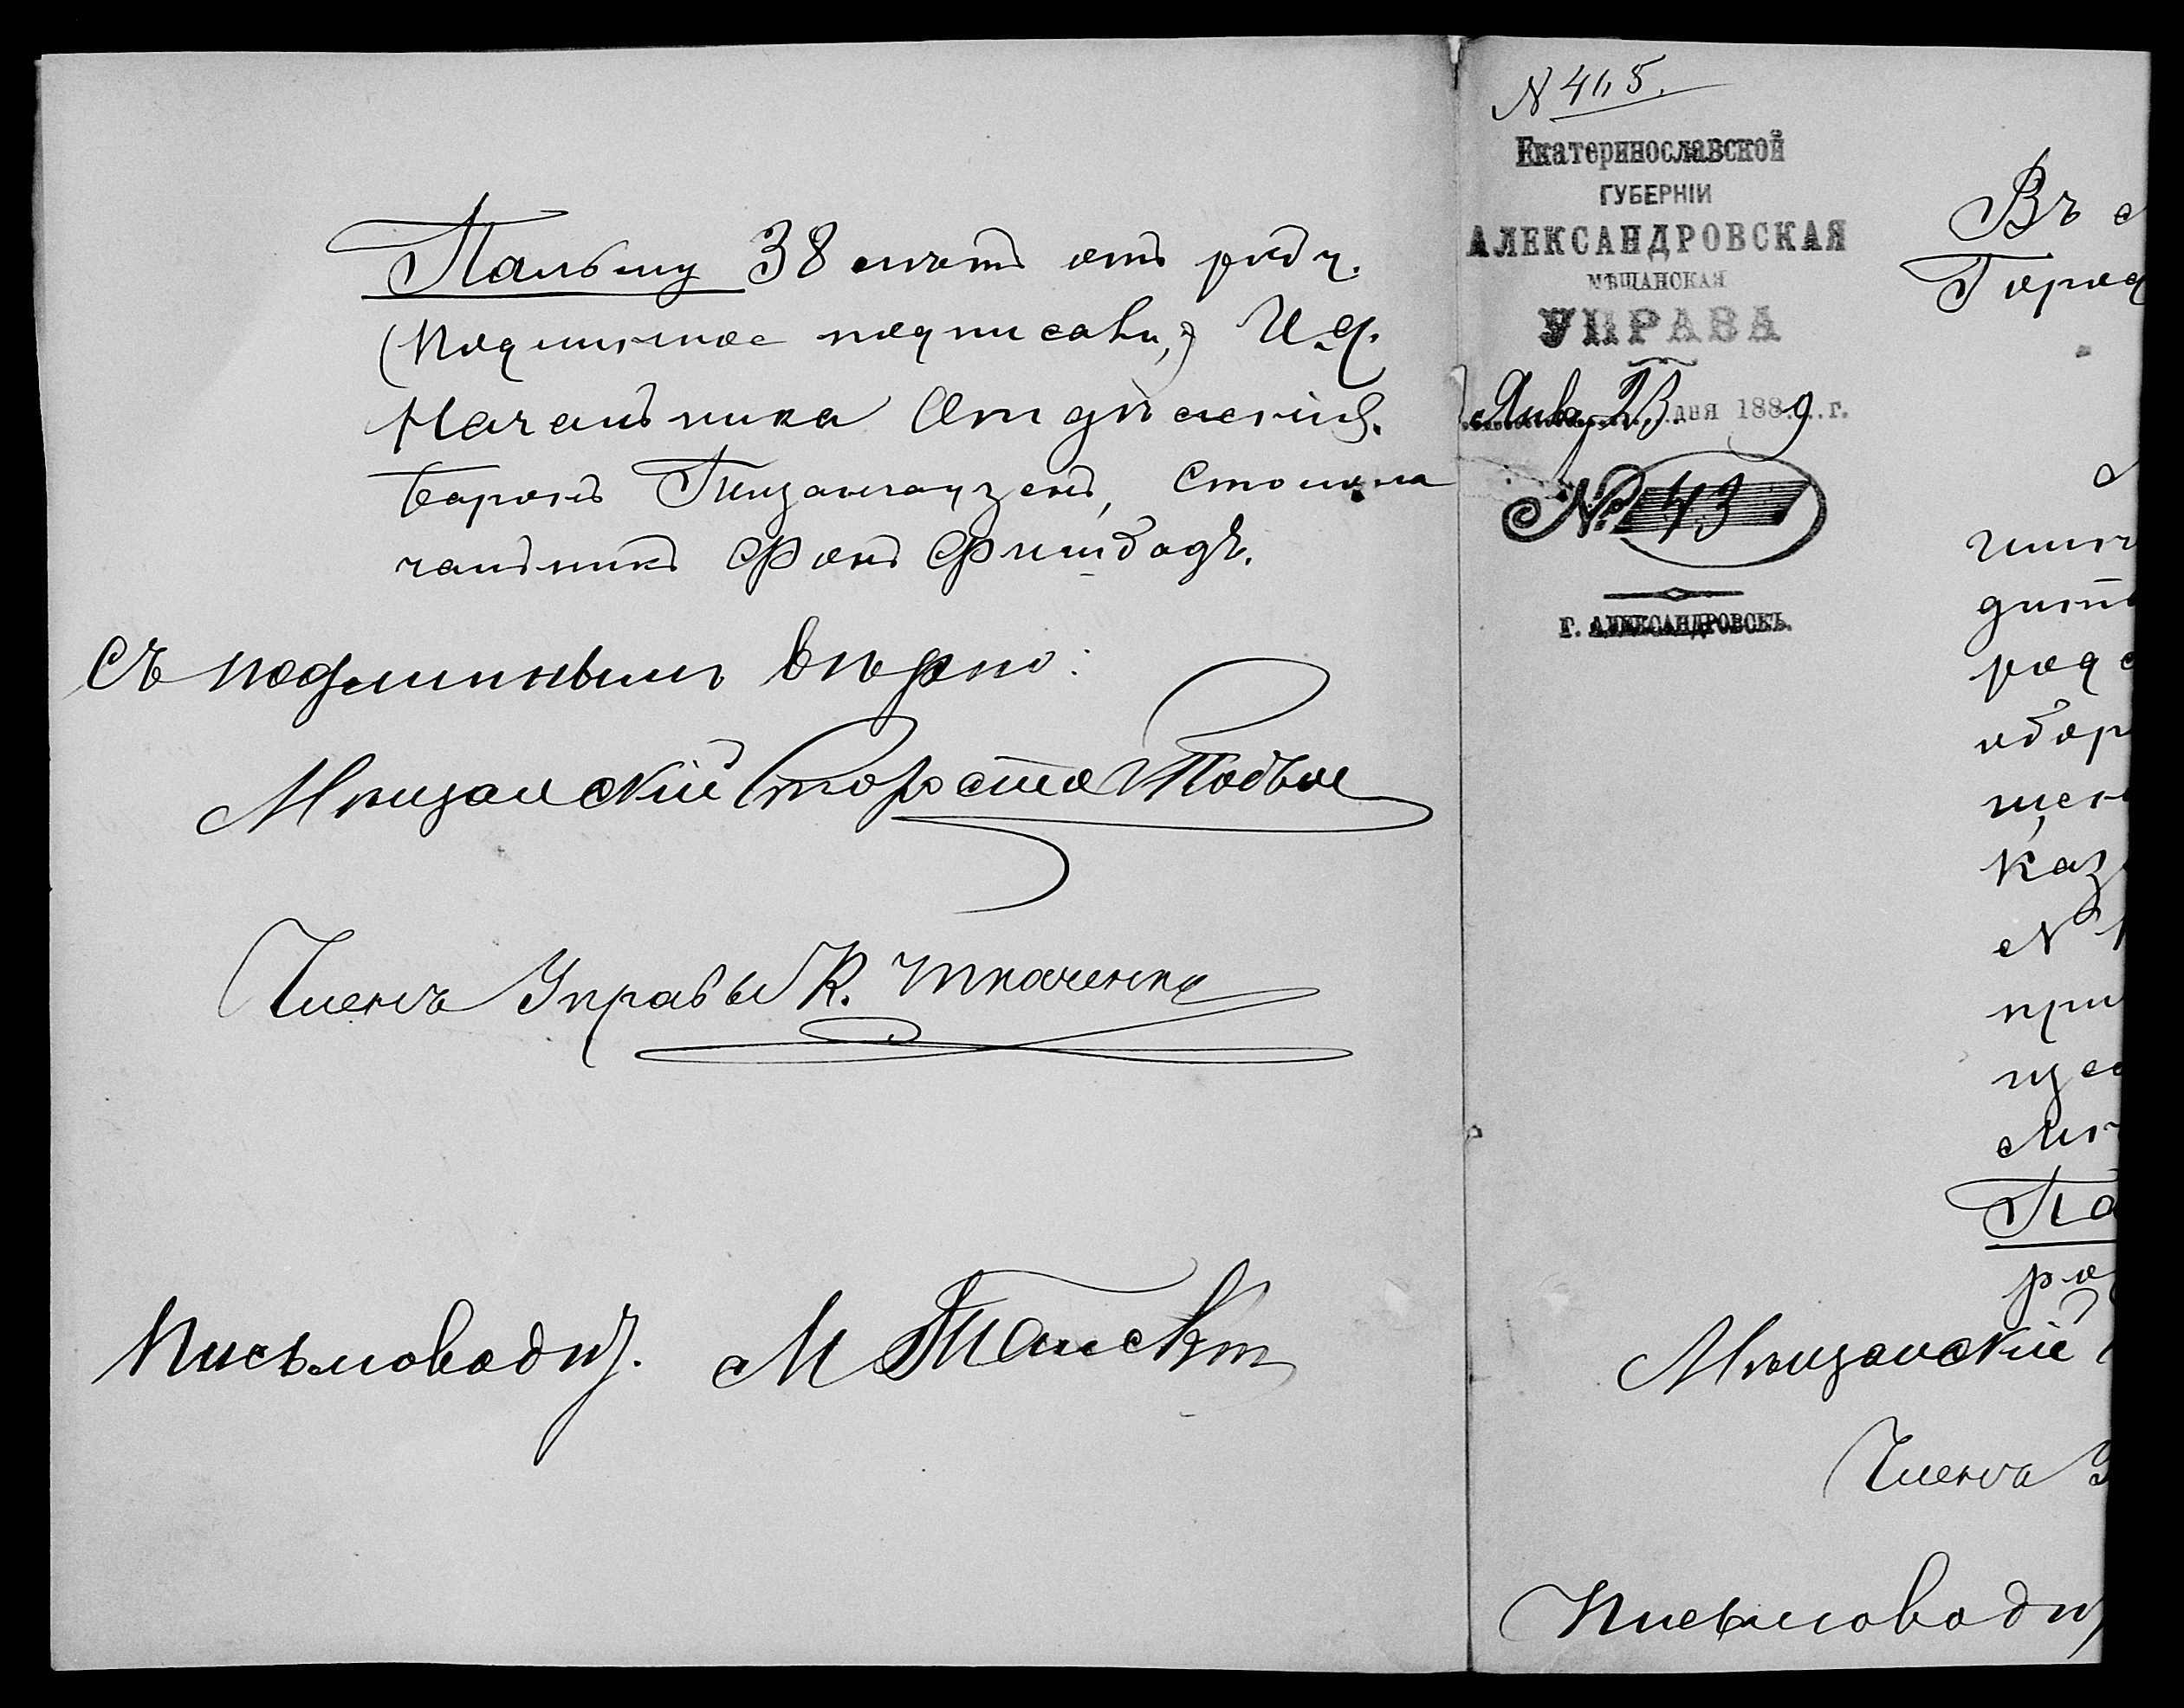 Пальму 38 лѣтъ отъ роду.
(Подлинное подписали,) И. д.
Начальника Отдѣленія.
Баронъ Тизенгаузенъ, Столона
чальникъ Фонъ
Съ подлиннымъ вѣрно:
Мѣщанскій Староста
Членъ Управы К. Ткаченко
Письмовод. М
N 465.
Екатеринославской
ГУБЕРНІИ
АЛЕКСАНДРОВСКАЯ
МѢЩАНСКАЯ
УПРАВА
Янв. 23 дня 1889 г.
№ 43
г. АЛЕКСАНДРОВСКЪ.
Въ
Город
род
обор
каз
N
при
Па
ро
Мѣщанскій
Членъ У
Письмовод